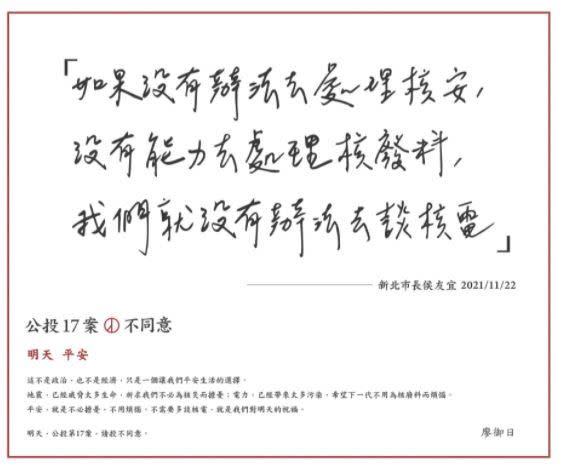 「如果沒有辦法去處理核安,
沒有能力去處理核廢料,
我們就沒有辦法去談核電」
新北市長侯友宜 2021/11/22
公投17案 不同意
明天 平安
這不是政治,也不是經濟,只是一個讓我們平安生活的選擇。
地震,已經威脅太多生命,祈求我們不必為核災而擔憂;電力,已經帶來太多污染,希望下一代不用為核廢料而煩惱。
平安,就是不必擔憂,不用煩惱,不需要多談核電,就是我們對明天的祝福。
明天,公投第17案,請投不同意。
廖御日